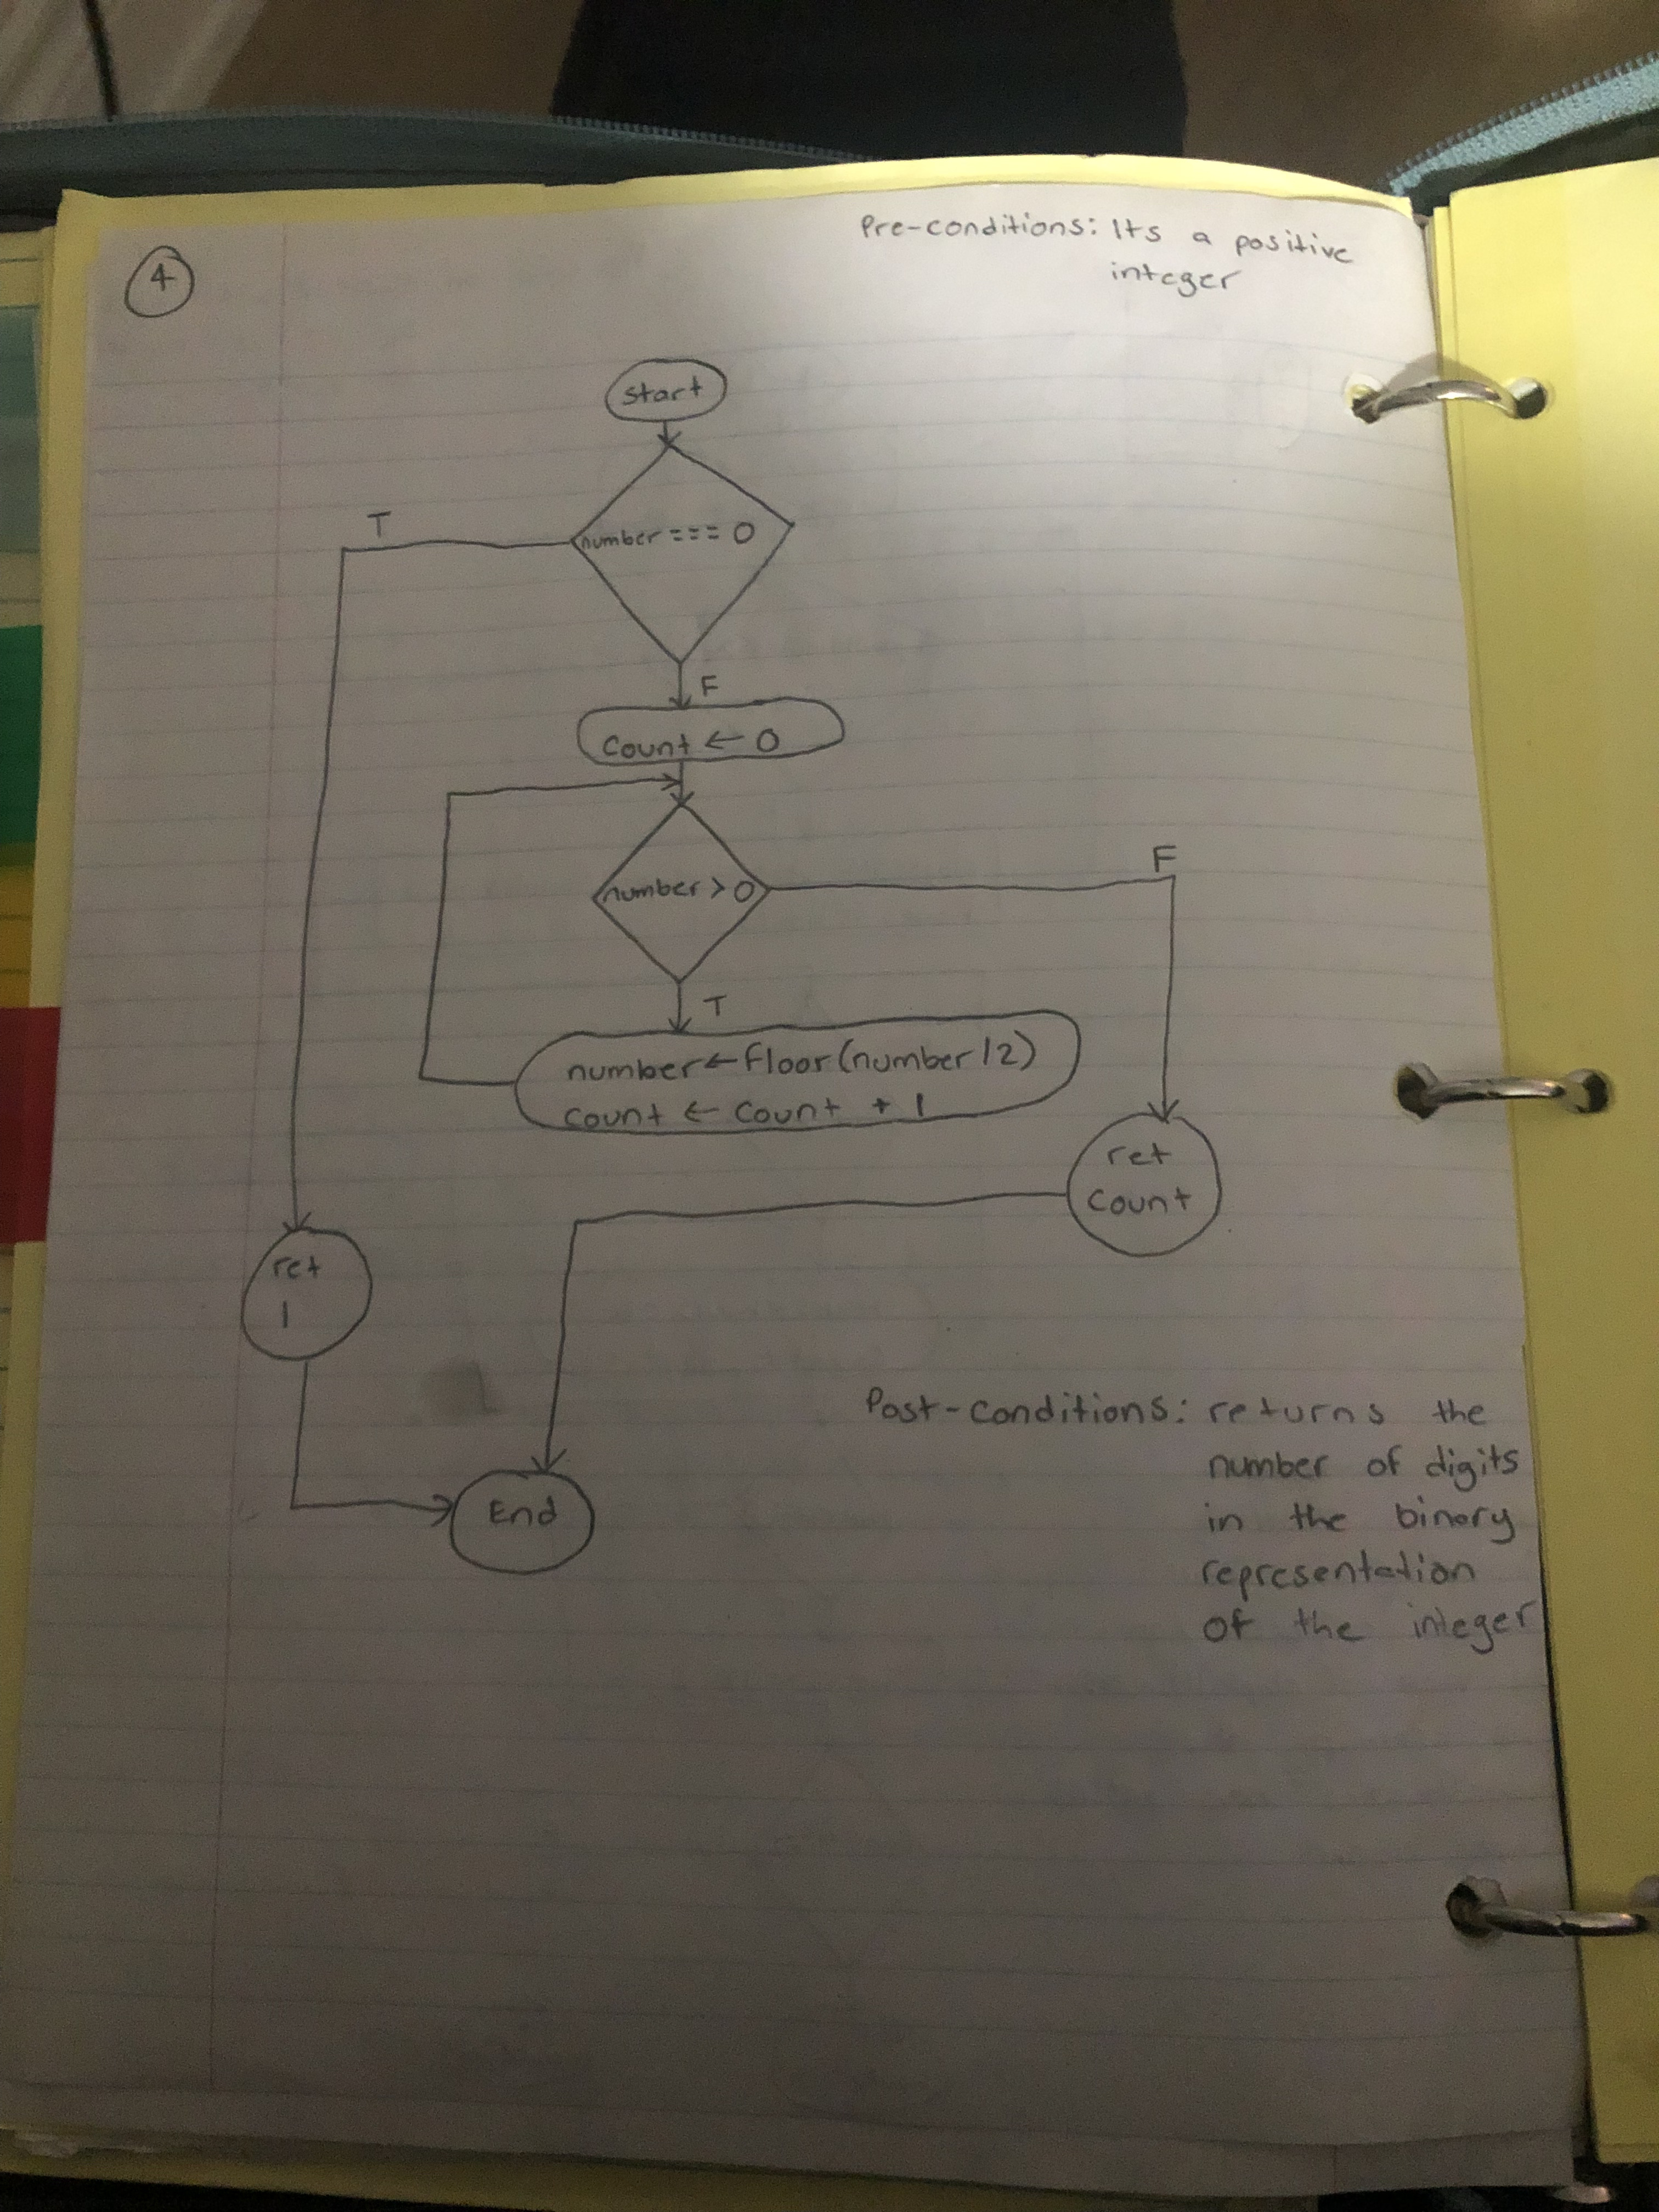 4
Pre-conditions: Its a positive
integer
start
number === 0
T
F
Count ← 0
number > 0
F
T
number ← floor(number/2)
count ← count + 1
ret
count
ret
1
End
Post-conditions: returns the
number of digits
in the binary
representation
of the integer